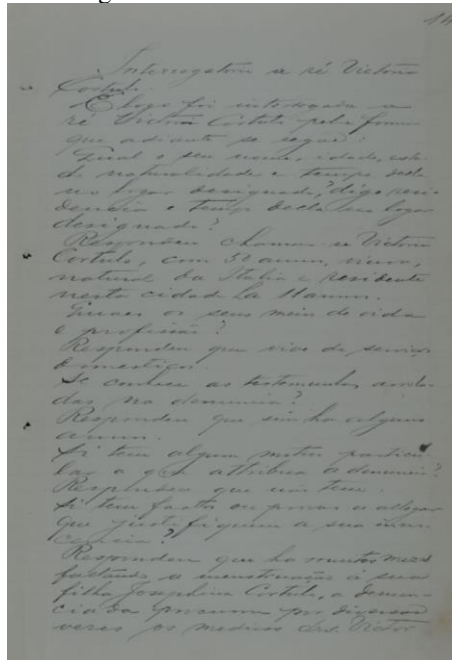 Interrogatorio a ré Victoria
Cortulo
E logo foi interrogada a
ré Victoria Cortulo pela forma
que adiante se segue:
Qual o seu nome, idade, esta-
do naturalidade e tempo desta
no logar designado, digo resi-
dencia e tempo desta no logar
designado?
Respondeu chamar-se Victoria
Cortulo, com 50 annos, viuva,
natural da Italia e residente
nesta cidade ha 11 annos.
Quaes os seus meios de vida
e profissão?
Respondeu que vive de serviços
domesticos.
Se conhece as testemunhas arrola-
das na denuncia?
Respondeu que sim ha alguns
annos.
Si tem algum motivo particu-
lar a que attribua a denuncia?
Respondeu que não tem.
Si tem factos ou provas a allegar
que justifiquem a sua inno-
cencia?
Respondeu que ha muitos mezes
faltando a menstruação á sua
filha Josephina Cortulo, a denun-
ciada procurou por diversas
vezes os medicos drs. Victor